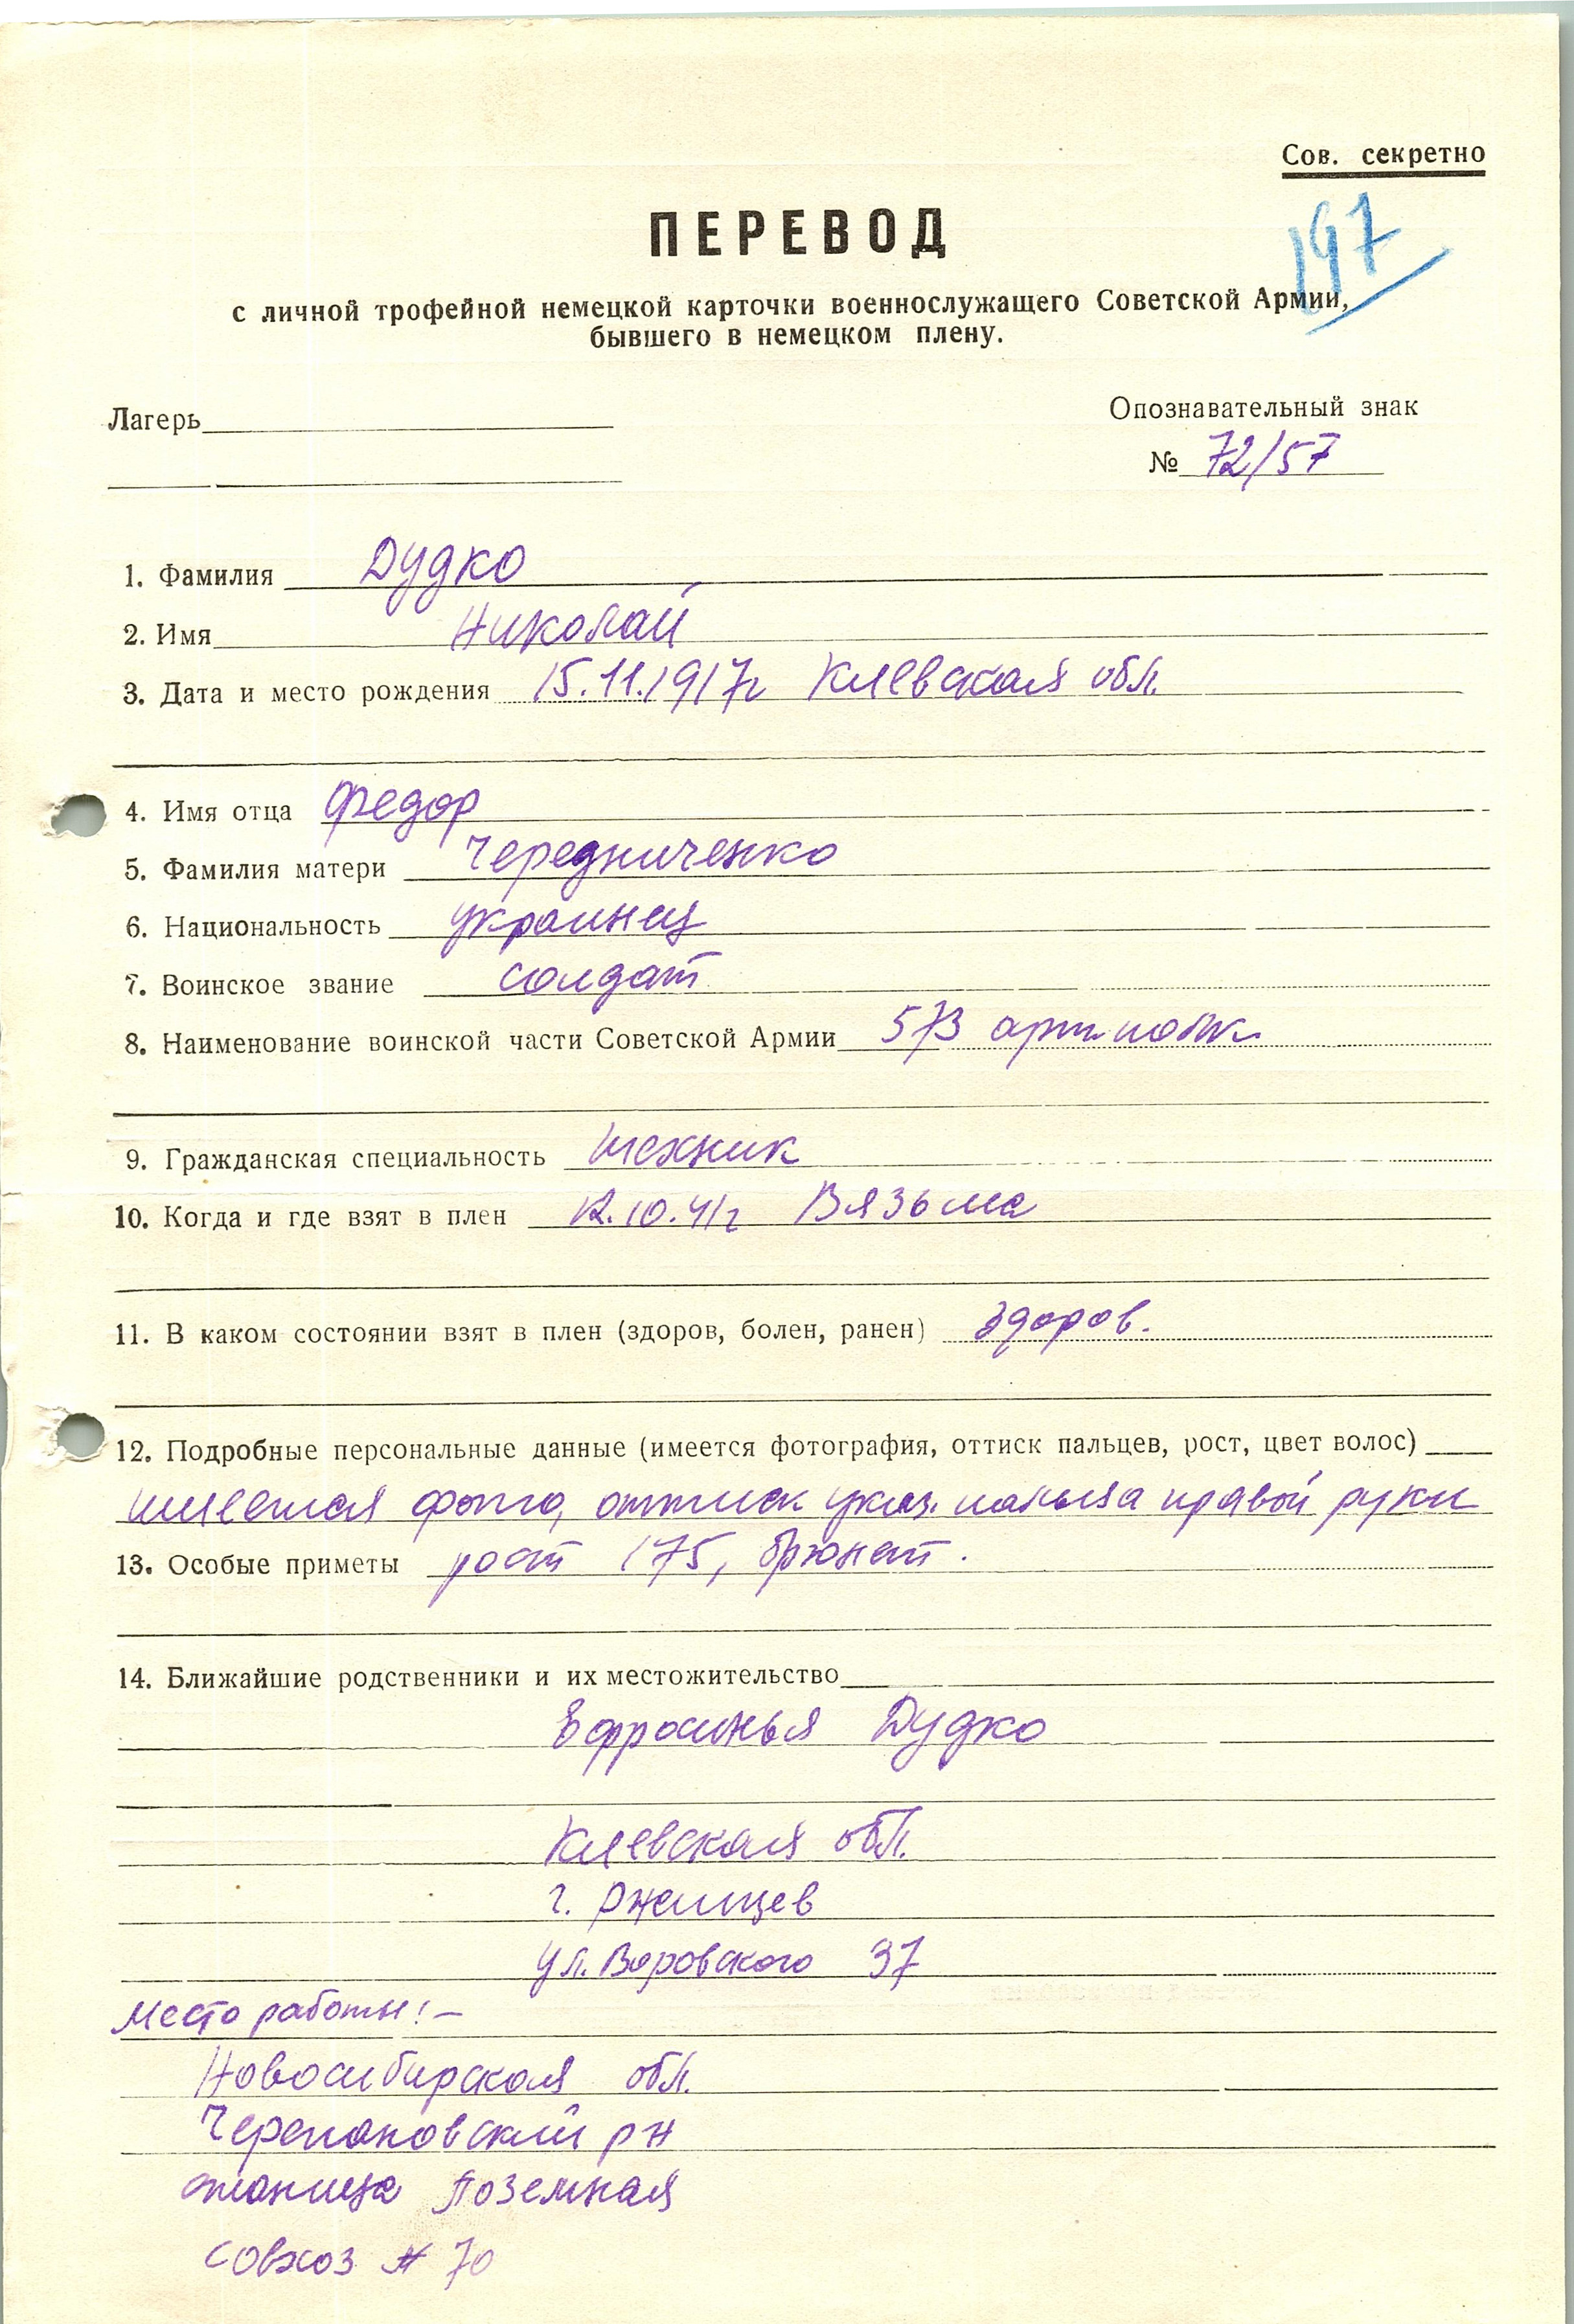 Сов. секретно
197
ПЕРЕВОД
с личной трофейной немецкой карточки военнослужащего Советской Армии,
бывшего в немецком плену.
Лагерь
Опознавательный знак
№ 72/57
1. Фамилия Дудко
2. Имя Николай
3. Дата и место рождения 15.11.1917г Киевская обл.
4. Имя отца Федор
5. Фамилия матери Чередниченко
6. Национальность украинец
7. Воинское звание солдат
8. Наименование воинской части Советской Армии 573 арт. полк
9. Гражданская специальность техник
10. Когда и где взят в плен 12.10.41г Вязьма
11. В каком состоянии взят в плен (здоров, болен, ранен) здоров.
12. Подробные персональные данные (имеется фотография, оттиск пальцев, рост, цвет волос)
имеется фото, оттиск указ. пальца правой руки
13. Особые приметы рост 175, брюнет.
14. Ближайшие родственники и их местожительство
Ефросинья Дудко
Киевская обл.
г. Ржищев
ул. Воровского 37
Место работы:-
Новосибирская обл.
Черепановский рн
станица Поземная
совхоз № 70